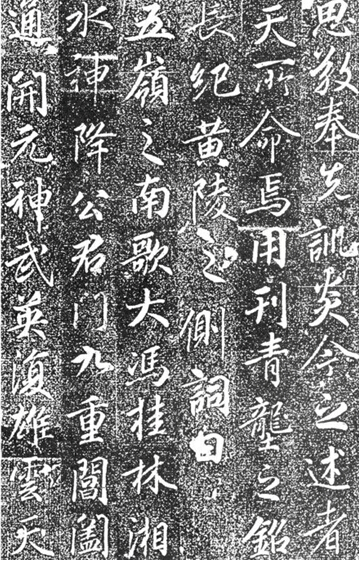 思敎奉先訓炎今之述者
天所命焉用刊青壟之銘
長紀黃陵之側詞曰
五嶺之南歌大馮桂林湘
水神降公君門九重閶闔
通開元神武英湏雄雲天